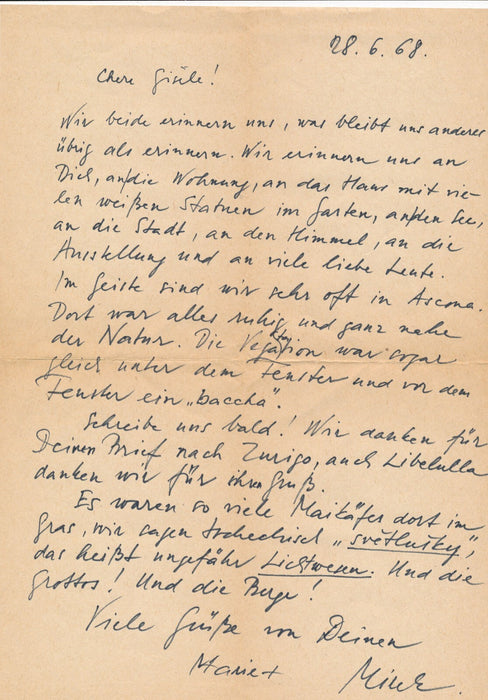 28. 6. 68.
Chere Gisèle!
Wir beide erinnern uns, was bleibt uns anderes
übrig als erinnern. Wir erinnern uns an
Dich, an die Wohnung, an das Haus mit vie-
len weißen Statuen im Garten, an den See,
an die Stadt, an den Himmel, an die
Ausstellung und an viele liebe Leute.
Im Geiste sind wir sehr oft in Ascona.
Dort war alles ruhig und ganz nahe
der Natur. Die Vegetation war sogar
gleich unter dem Fenster und vor dem
Fenster ein „baccha“.
Schreibe uns bald! Wir danken für
Deinen Brief nach Zurigo, auch Libelulla
danken wir für ihren Gruß.
Es waren so viele Maikäfer dort im
Gras, wir sagen tschechisch „světlušky“,
das heißt ungefähr Lichtwesen. Und die
Grottos! Und die Berge!
Viele Grüße von Deinen
Marie +
Mirek.